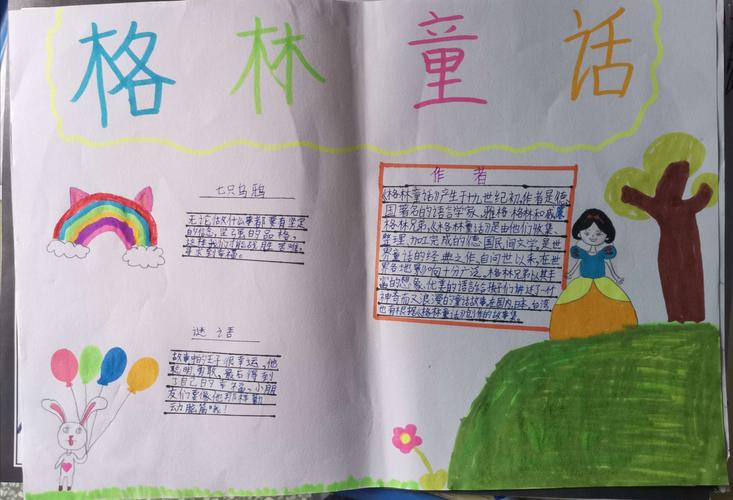 格林童话
七只乌鸦
无论做什么事都要有坚定
的信念，坚强的品格，
这样我们才能战胜困难，
寻找到幸福。
谜语
故事中的王子很幸运，他
聪明勇敢，最后得到
了自己的幸福。小朋
友们要像他那样勤
动脑筋哦！
作者
《格林童话》产生于十九世纪初，作者是德
国著名的语言学家，雅格·格林和威廉·
格林兄弟。《格林童话》是由他们收集、
整理、加工完成的德国民间文学，是世
界童话的经典之作，自问世以来，在世
界各地影响十分广泛。格林兄弟以其丰
富的想象、优美的语言给孩子们讲述了一个个
神奇而又浪漫的童话故事。在国内，日本，台湾
也有根据《格林童话》创作的故事集。